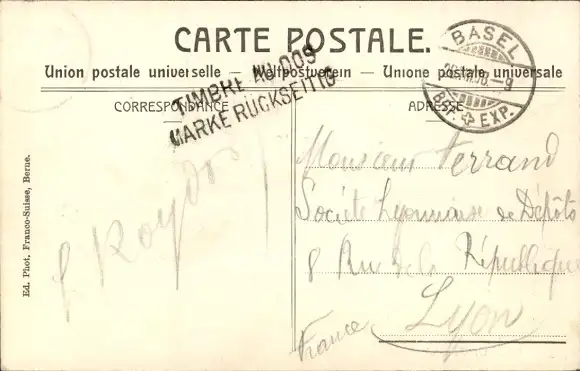 CARTE POSTALE.
Union postale universelle — Weltpostverein — Unione postale universale
TIMBRE AU DOS
MARKE RÜCKSEITIG
BASEL
BRF. EXP.
CORRESPONDANCE
ADRESSE
Monsieur Ferrand
Société Lyonnaise de Dépôts
8 Rue de la République
Lyon
France
Ed. Phot. Franco-Suisse, Berne.